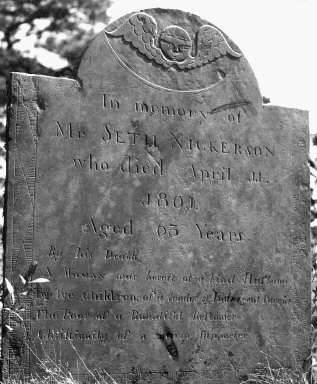 In memory of
Mr SETH NICKERSON
who died April 11.
1801.
Aged 65 Years.
By his Death,
A Woman was bereft of a kind Husband
Twelve Children of a tender & Indulgent Parent
The Poor of a Bountiful
Christianity of a warm Supporter